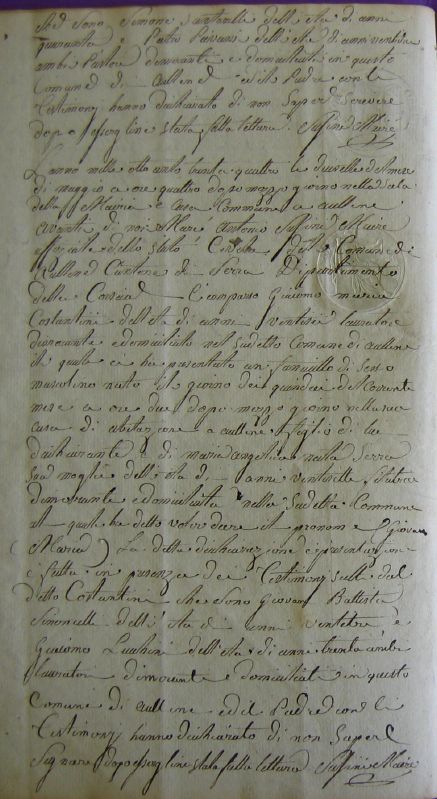 che sono Simone Santarelli dell'età di anni
quaranta e Pietro dell'età di anni ventitre
ambi Pastori dimoranti e domiciliati in questo
Comune di Aullene ed il Padre con li
Testimonj hanno dichiarato di non Saper Scrivere
dopo essergline stata fatta lettura. Maire
L'anno mille otto cento trenta quattro le diecisette del mese
di maggio a ore quattro dopo mezzo giorno nella Sala
della Mairia e Casa Commune a aullene
avanti di noi Marc Antonio Maire
officiale dello Stato Civile della Comune di
aullene Cantone di Serra Dipartimento
della Corsica È comparso Giacomo maria
Costantini dell'età di anni ventisei lavoratore
dimorante e domiciliato nel Sudetto Comune di aullene
il quale ci ha presentato un fanciullo di Sesso
mascolino nato il giorno dei quindeci del Corrente
mese a ore due dopo mezzo giorno nella sua
casa di abitazione a aullene figlio di lui
dichiarante e di maria angelica nata Serra
Sua moglie dell'età di anni ventisette
dimorante e domiciliata nella Sudetta Commune
al quale ha detto voler dare il pronome (Giovan
Maria) La detta dichiarazione e presentazione
è fatta in presenza dei Testimonj del
detto Costantini che sono Giovan Battista
dell'età di anni ventitre e
Giacomo Lucchini dell'età di anni trenta ambi
lavoratori dimoranti e domiciliati in questo
Comune di aullene ed il Padre con li
Testimonj hanno dichiarato di non Saper
Segnare dopo essergline stata fatta lettura Maire